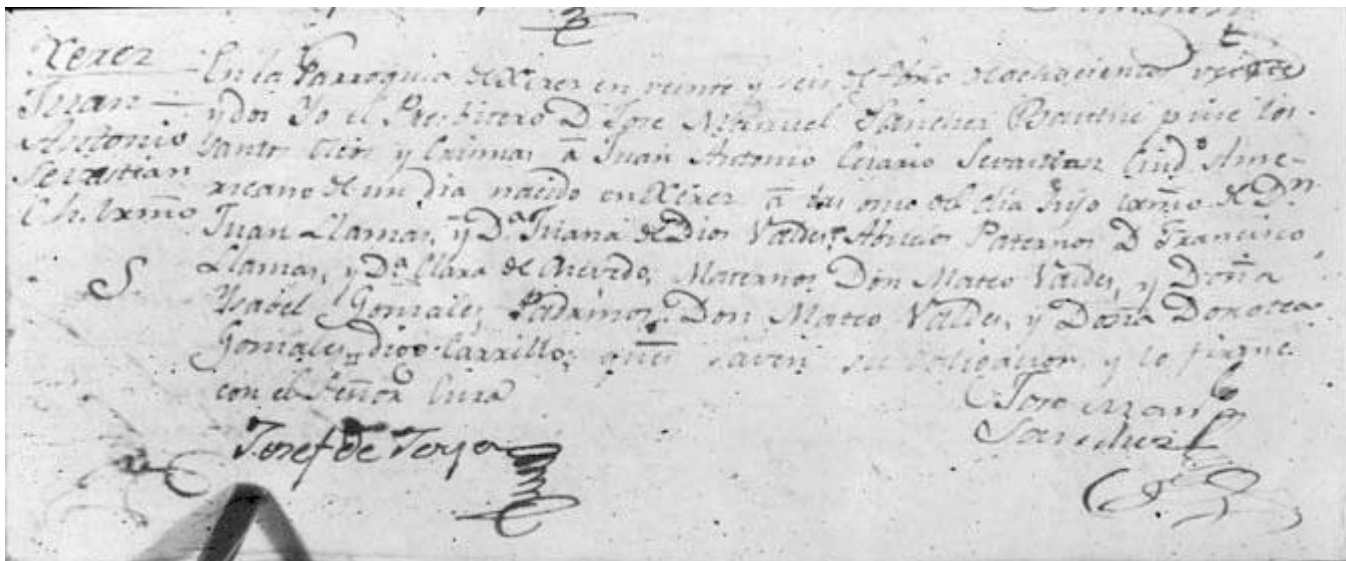 Xerez
Juan
Antonio
Sevastian
Ch. lexmo.
S.
En la Parroquia de Xerez en veinte y seis de ochocientos veinte
y dos Yo el Presbitero D. Jose Manuel Sanchez puse los
santos Oleos y Crisma, a Juan Antonio Sevastian Ciud.o Ame-
ricano de un dia nacido en Xerez a las once del dia hijo lexmo. de Dn.
Juan Llamas, y D.a Juana de Dios Valdes, Abuelos Paternos D. Francisco
Llamas, y D.a Clara de Acevedo, Maternos Don Mateo Valdes, y Doña
Ysabel Gonzales, Padrinos, Don Mateo Valdes, y Doña Dorotea
Gonzales, digo Carrillo; qnes. saven su obligacion, y lo firme
con el Señor Cura
Jose Man.l
Sanchez
Josef de